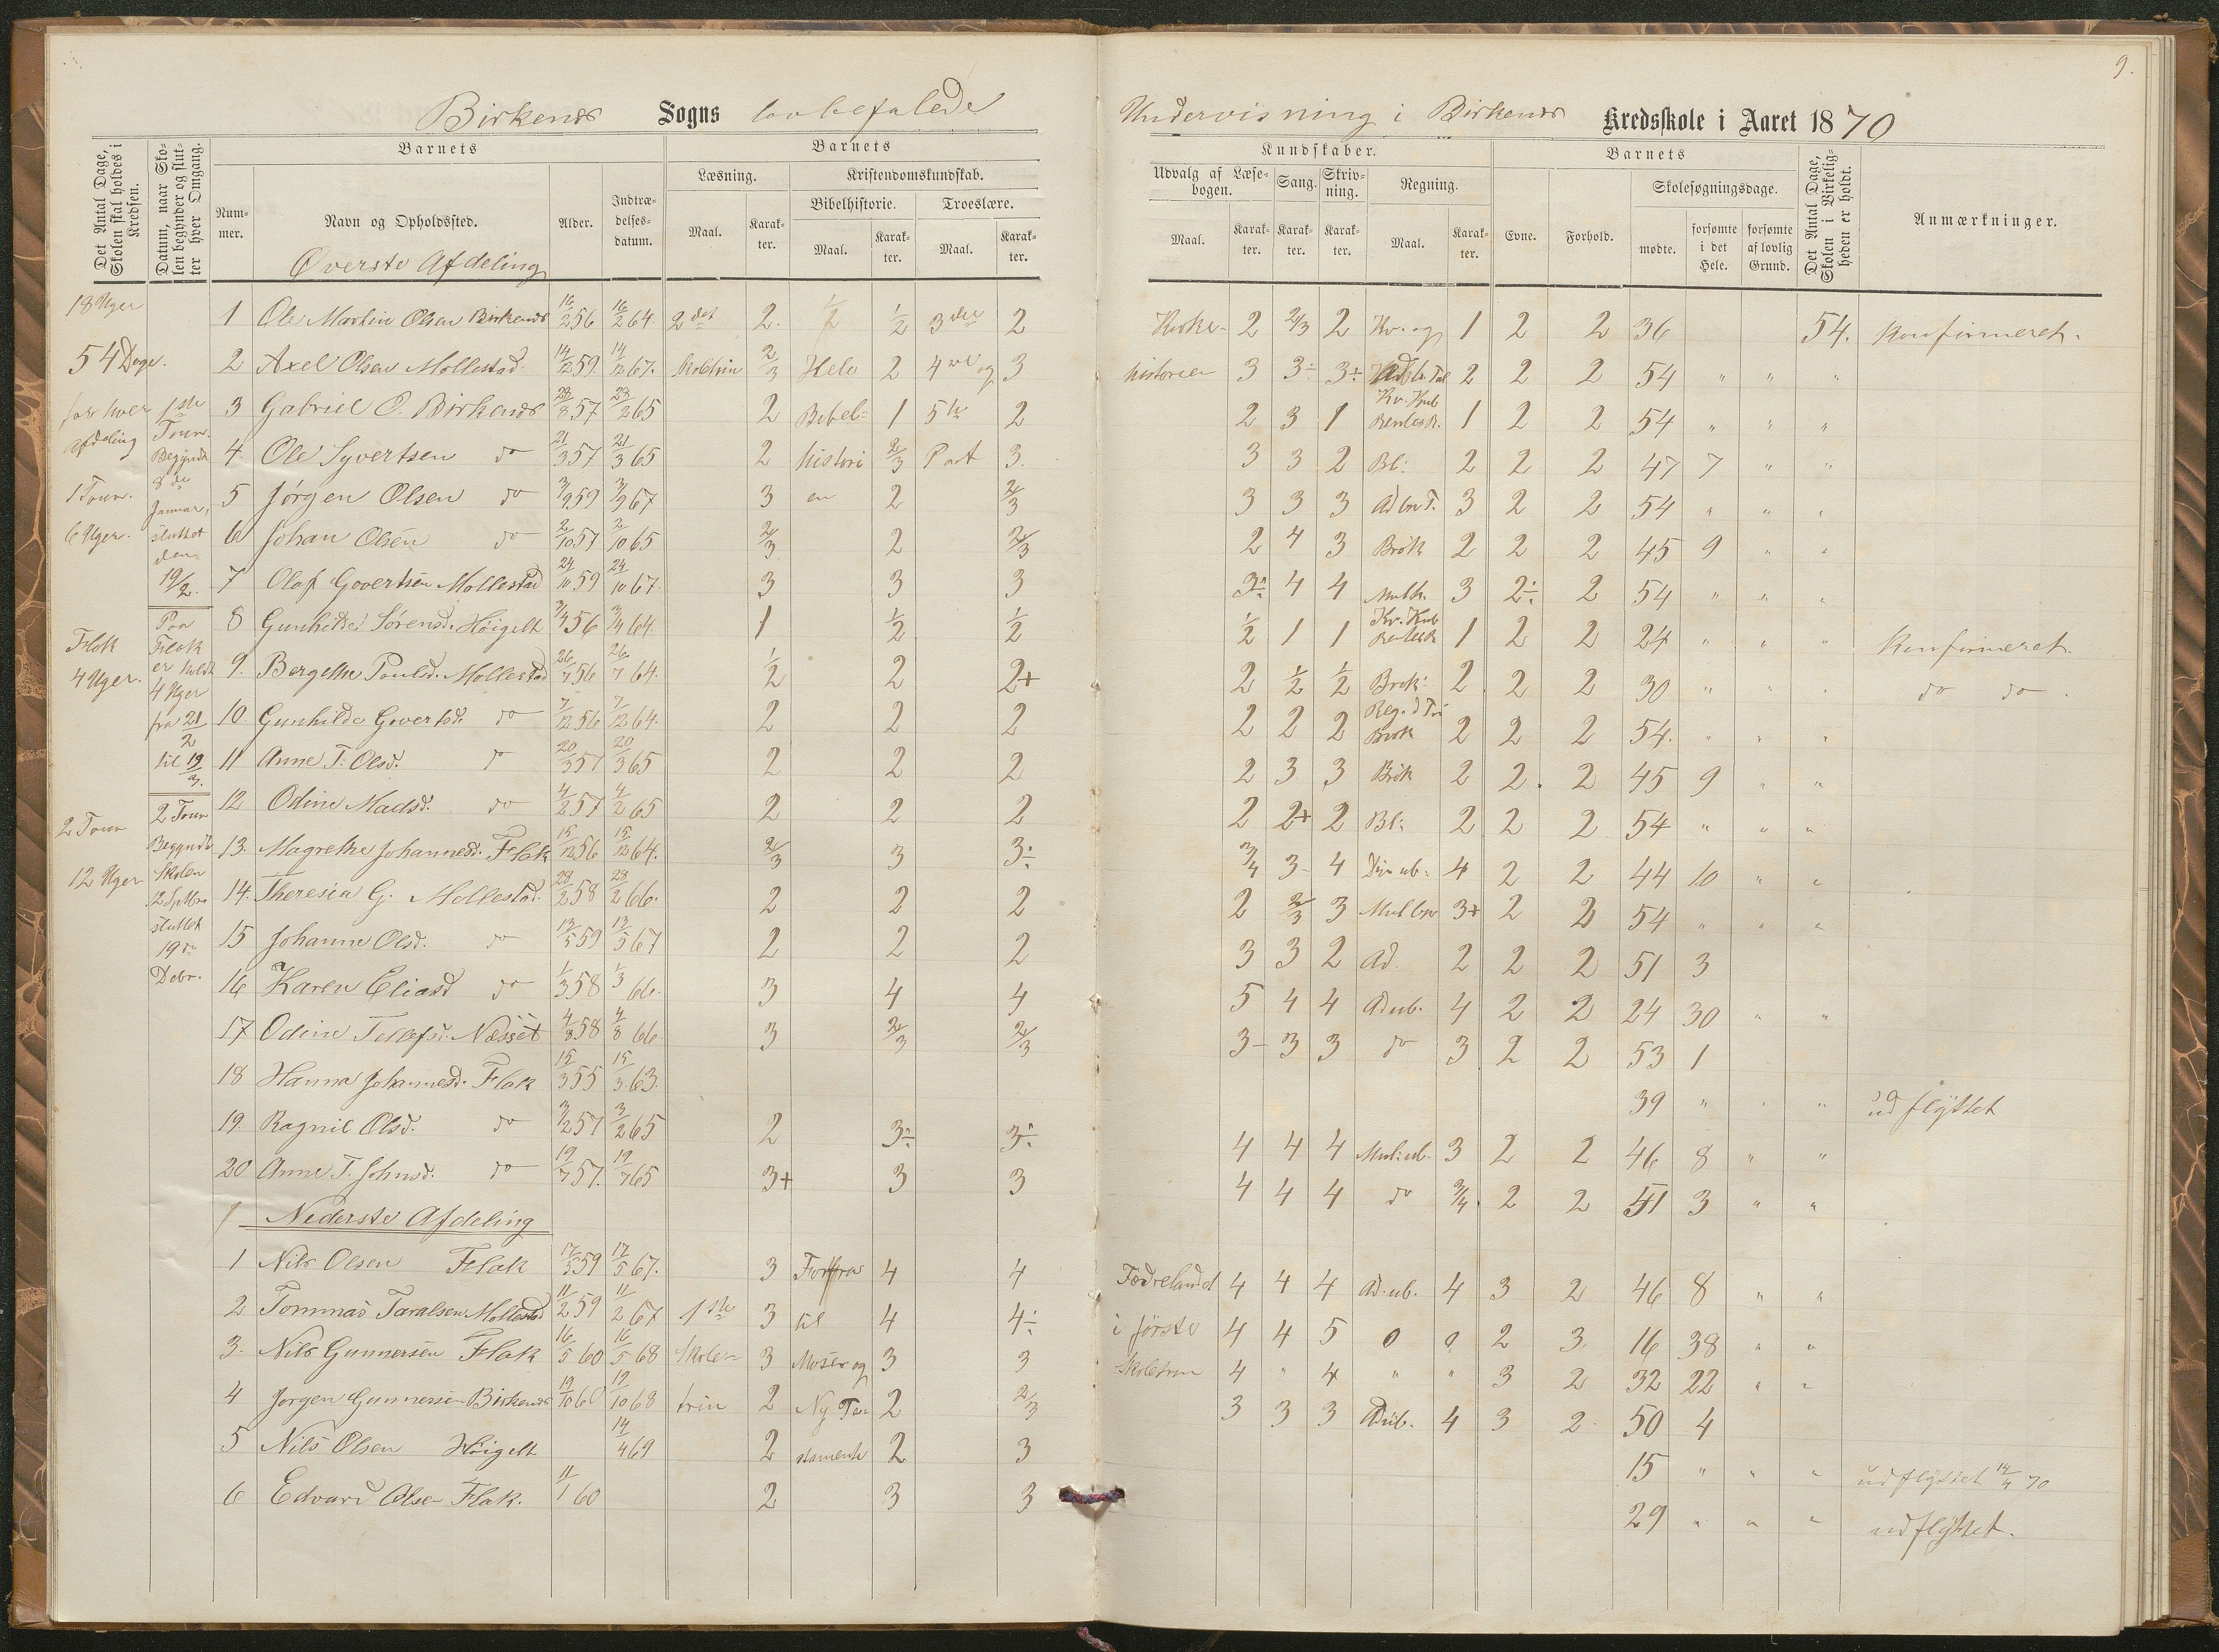 9.
Birkenes Sogns lovbefalede Undervisning i Birkenes Kredsskole i Aaret 1870
Det Antal Dage, Skolen skal holdes i Kredsen.
Datum, naar Skolen begynder og slutter hver Omgang.
Barnets
Nummer.
Navn og Opholdssted.
Alder.
Indtrædelsesdatum.
Barnets
Læsning.
Maal.
Karakter.
Kristendomskundskab.
Bibelhistorie.
Maal.
Karakter.
Troeslære.
Maal.
Karakter.
Kundskaber.
Udvalg af Læsebogen.
Maal.
Karakter.
Sang.
Karakter.
Skrivning.
Karakter.
Regning.
Maal.
Karakter.
Barnets
Evne.
Forhold.
Skolesøgningsdage.
mødte.
forsømte i det Hele.
forsømte af lovlig Grund.
Det Antal Dage, Skolen i Virkeligheden er holdt.
Anmærkninger.
18 Uger
54 Dage.
for hver
afdeling
1 Tour.
6 Uger.
Flak
4 Uger.
2 Tour
12 Uger
1ste
Tour.
Begyndt
8de
Januar,
sluttet
den
19/2.
Paa
Flak
er holdt
4 Uger
fra 21/2
til 19/3.
2 Tour
Begyndte
Skolen
12 Septbr
sluttet
19de
Debr.
Øverste Afdeling
1 Ole Martin Olsen Birkenes 16/2 56 16/2 64. 2det 2. 1/2 1/2 3die 2 Kirke- 2 2/3 2 Kv. og 1 2 2 36 54. Konfirmeret.
2 Axel Olsen Mollestad 14/12 59 14/12 67. Skoletrin 2/3 Hele 2 4de og 3 historien 3 3÷ 3÷ 2 2 2 54 " " "
3 Gabriel O. Birkenes 28/8 57 28/2 65 2 Bibel= 1 5te 2 2 3 1 Kv. Kub RentesR. 1 2 2 54 " " "
4. Ole Syvertsen do 21/3 57 21/3 65 2 histori 2/3 Part 3. 3 3 2 Bl: 2 2 2 47 7 " "
5 Jørgen Olsen do 3/9 59 3/9 67 3 en 2 2/3 3 3 3 Ad bn T. 3 2 2 54 " " "
6 Johan Olsen do 2/10 57 2/10 65 2/3 2 2/3 2 4 3 Brøk 2 2 2 45 9 " "
7 Olaf Govertsen Mollestad 24/10 59 24/10 67. 3 3 3 3÷ 4 4 Mult. 3 2÷ 2 54 " " "
8 Gunhilde Sørensd. Høigelt 3/4 56 3/4 64. 1 1/2 1/2 1/2 1 1 Kv. Kub RentesR 1 2 2 24 " " " Konfirmeret.
9. Bergethe Poulsd. Mollestad 26/7 56 26/7 64. 1/2 2 2+ 2 1/2 1/2 Brøk: 2 2 2 30 " " " do do
10. Gunhilde Govertsd. do 7/12 56 7/12 64. 2 2 2 2 2 2 Reg. d Tri Brøk 2 2 2 54. " " "
11 Anne T. Olsd. do 20/3 57 20/3 65 2 2 2 2 3 3 Brøk 2 2. 2 45 9 " "
12 Odine Madsd. do 4/2 57 4/2 65 2 2 2 2 2+ 2 Bl: 2 2 2 54 " " "
13. Magrethe Johannesd. Flak 15/12 56 15/12 64. 2/3 3 3÷ 3/4 3- 4 Div ub. 4 2 2 44 10 " "
14. Theresia G. Mollestad. 28/2 58 28/2 66. 2 2 2 2 2/3 3 Mul bn 3+ 2 2 54 " " "
15 Johanne Olsd. do 13/5 59 13/5 67 2 2 2 3 3 2 Ad. 2 2 2 51 3
16 Karen Eliasd do 1/3 58 1/3 66. 3 4 4 5 4 4 Ad ub. 4 2 2 24 30 " "
17 Odine Tellefsd. Næsset 4/8 58 4/8 66. 3 2/3 2/3 3- 3 3 do 3 2 2 53 1
18 Hanna Johannesd. Flak 15/3 55 15/3 63. 39 " " " udflyttet
19. Ragnil Olsd. do 3/2 57 3/2 65 2 3÷ 3÷ 4 4 4 Mul: ub. 3 2 2 46 8 " "
20 Anne T. Johnsd. do 19/7 57. 19/7 65 3+ 3 3 4 4 4 do 3/4. 2 2 51 3 " "
Nederste Afdeling
1 Nils Olsen Flak 17/5 59 17/5 67. 3 Forfra 4 4 Fædrelandet 4 4 4 Ad. ub. 4 3 2 46 8 " "
2 Tommas Taralsen Mollestad 11/2 59 11/2 67 1ste 3 til 4 4÷ i første 4 4 5 0 0 2 3. 16 38 " "
3. Nils Gunnersen Flak 16/5 60 16/5 68 Skole= 3 Moses og 3 3 Skoletrin 4 " 4 " " 3 2 32 22 " "
4 Jørgen Gunnersen Birkenes 19/10 60 19/10 68 trin 2 Ny Te 2 2/3 3 3 3 Ad ub. 4 3 2. 50 4
5 Nils Olsen Høigelt 14/4 69 2 stamente 2 3 15 " " " udflyttet 14/4 70
6 Edvard Olsen Flak. 11/1 60 2 3 3 29 " " " udflyttet.